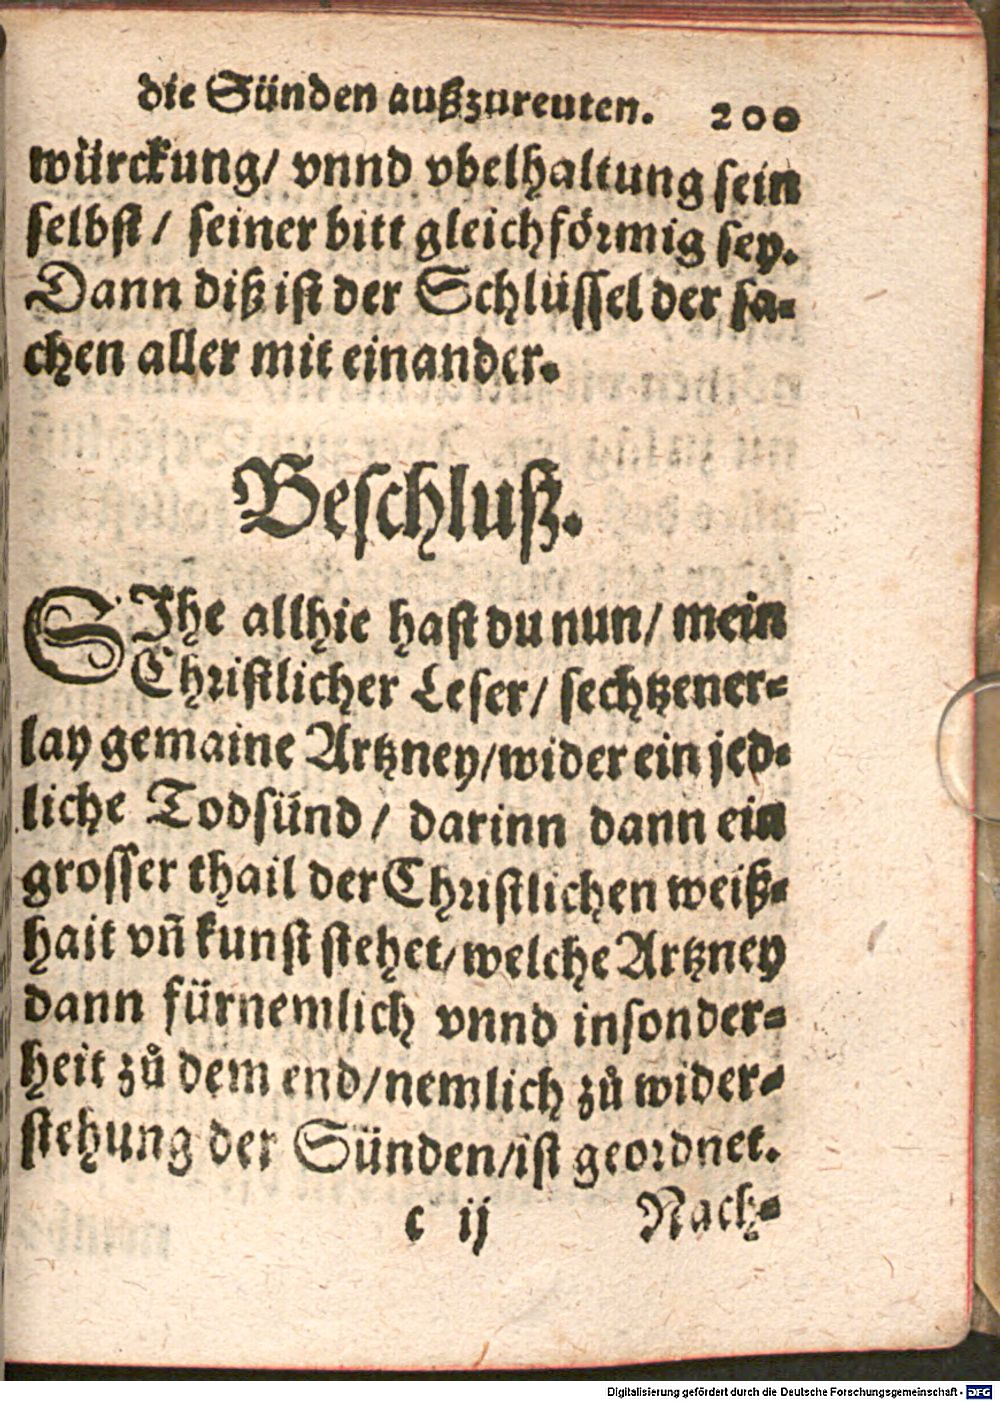 die Sünden außzureuten. 200
würckung/ vnnd vbelhaltung sein
selbst/ seiner bitt gleichförmig sey.
Dann diß ist der Schlüssel der sa-
chen aller mit einander.
Beschluß.
SIhe allhie hast du nun/ mein
Christlicher Leser/ sechtzener-
lay gemaine Artzney/wider ein jed-
liche Todsünd/ darinn dann ein
grosser thail der Christlichen weiß-
hait vñ kunst stehet/welche Artzney
dann fürnemlich vnnd insonder-
heit zů dem end/nemlich zů wider-
stehung der Sünden/ist geordnet.
c ij Nach-
Digitalisierung gefördert durch die Deutsche Forschungsgemeinschaft - DFG